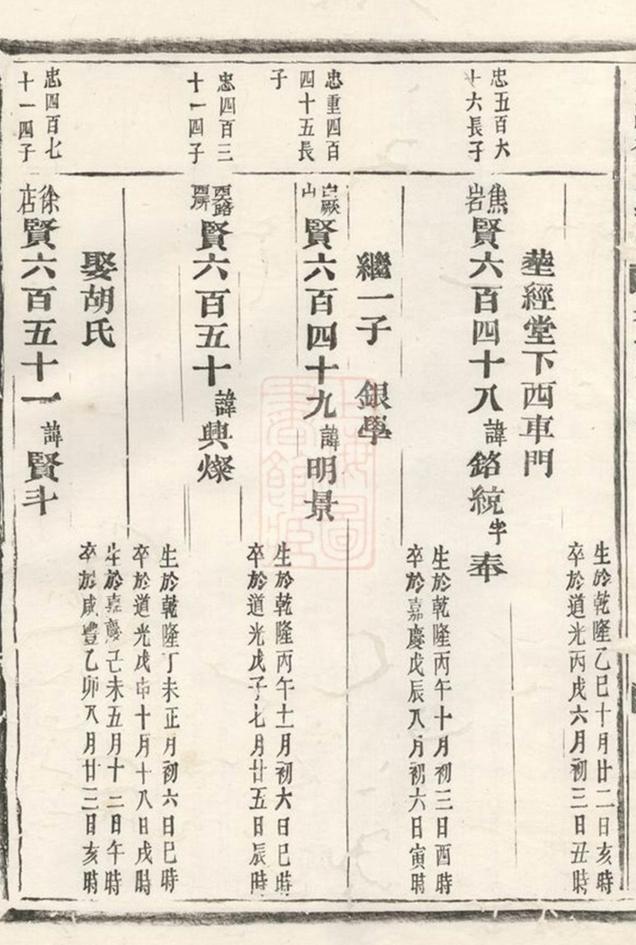 生於乾隆乙巳十月廿二日亥時
卒於道光丙戌六月初三日丑時
塟經堂下西車門
忠五百六
十六長子
焦岩
賢六百四十八
諱
銘統
字
奉
生於乾隆丙午十月初三日酉時
卒於嘉慶戊辰八月初六日寅時
繼一子 銀學
忠重四百
四十五長
子
山
賢六百四十九
諱
明景
生於乾隆丙午十一月初六日巳時
卒於道光戊子七月廿五日辰時
忠四百三
十一四子
賢六百五十
諱
興燦
生於乾隆丁未正月初六日巳時
卒於道光戊申十月十八日戌時
娶胡氏
生於嘉慶己未五月十二日午時
卒於咸豐乙卯八月廿三日亥時
忠四百七
十一四子
徐店
賢六百五十一
諱
賢斗